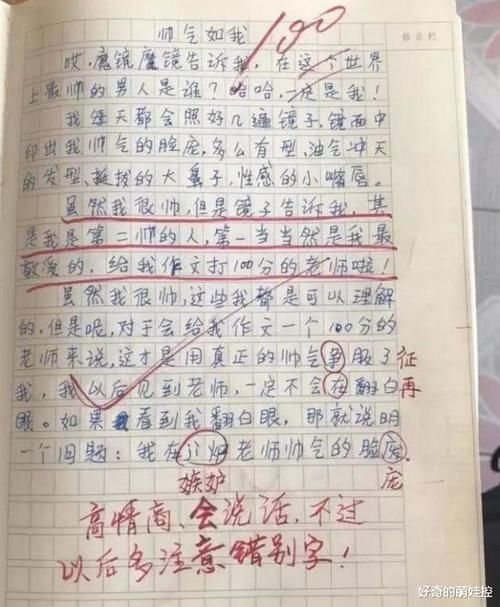 帅气如我
100
修正栏
哎,魔镜魔镜告诉我,在这个世界
上最帅的男人是谁?哈哈,一定是我!
我每天都会照好几遍镜子,镜面中
印出我帅气的脸庞,多么有型,油气冲天
的发型,挺拔的大鼻子,性感的小嘴唇。
虽然我很帅,但是镜子告诉我,其
是我是第二帅的人,第一当当然是我最
敬爱的,给我作文打100分的老师啦!
虽然我很帅,这些我都是可以理解
的,但是呢,对于会给我作文一个100分的
老师来说,这才是用真正的帅气服了 征
我,我以后见到老师,一定不会在翻白 再
眼。如果看到我翻白眼,那就说明
一个问题:我在老师帅气的脸。
嫉妒 庞
高情商、会说话,不过
以后多注意错别字!
好奇的萌娃控